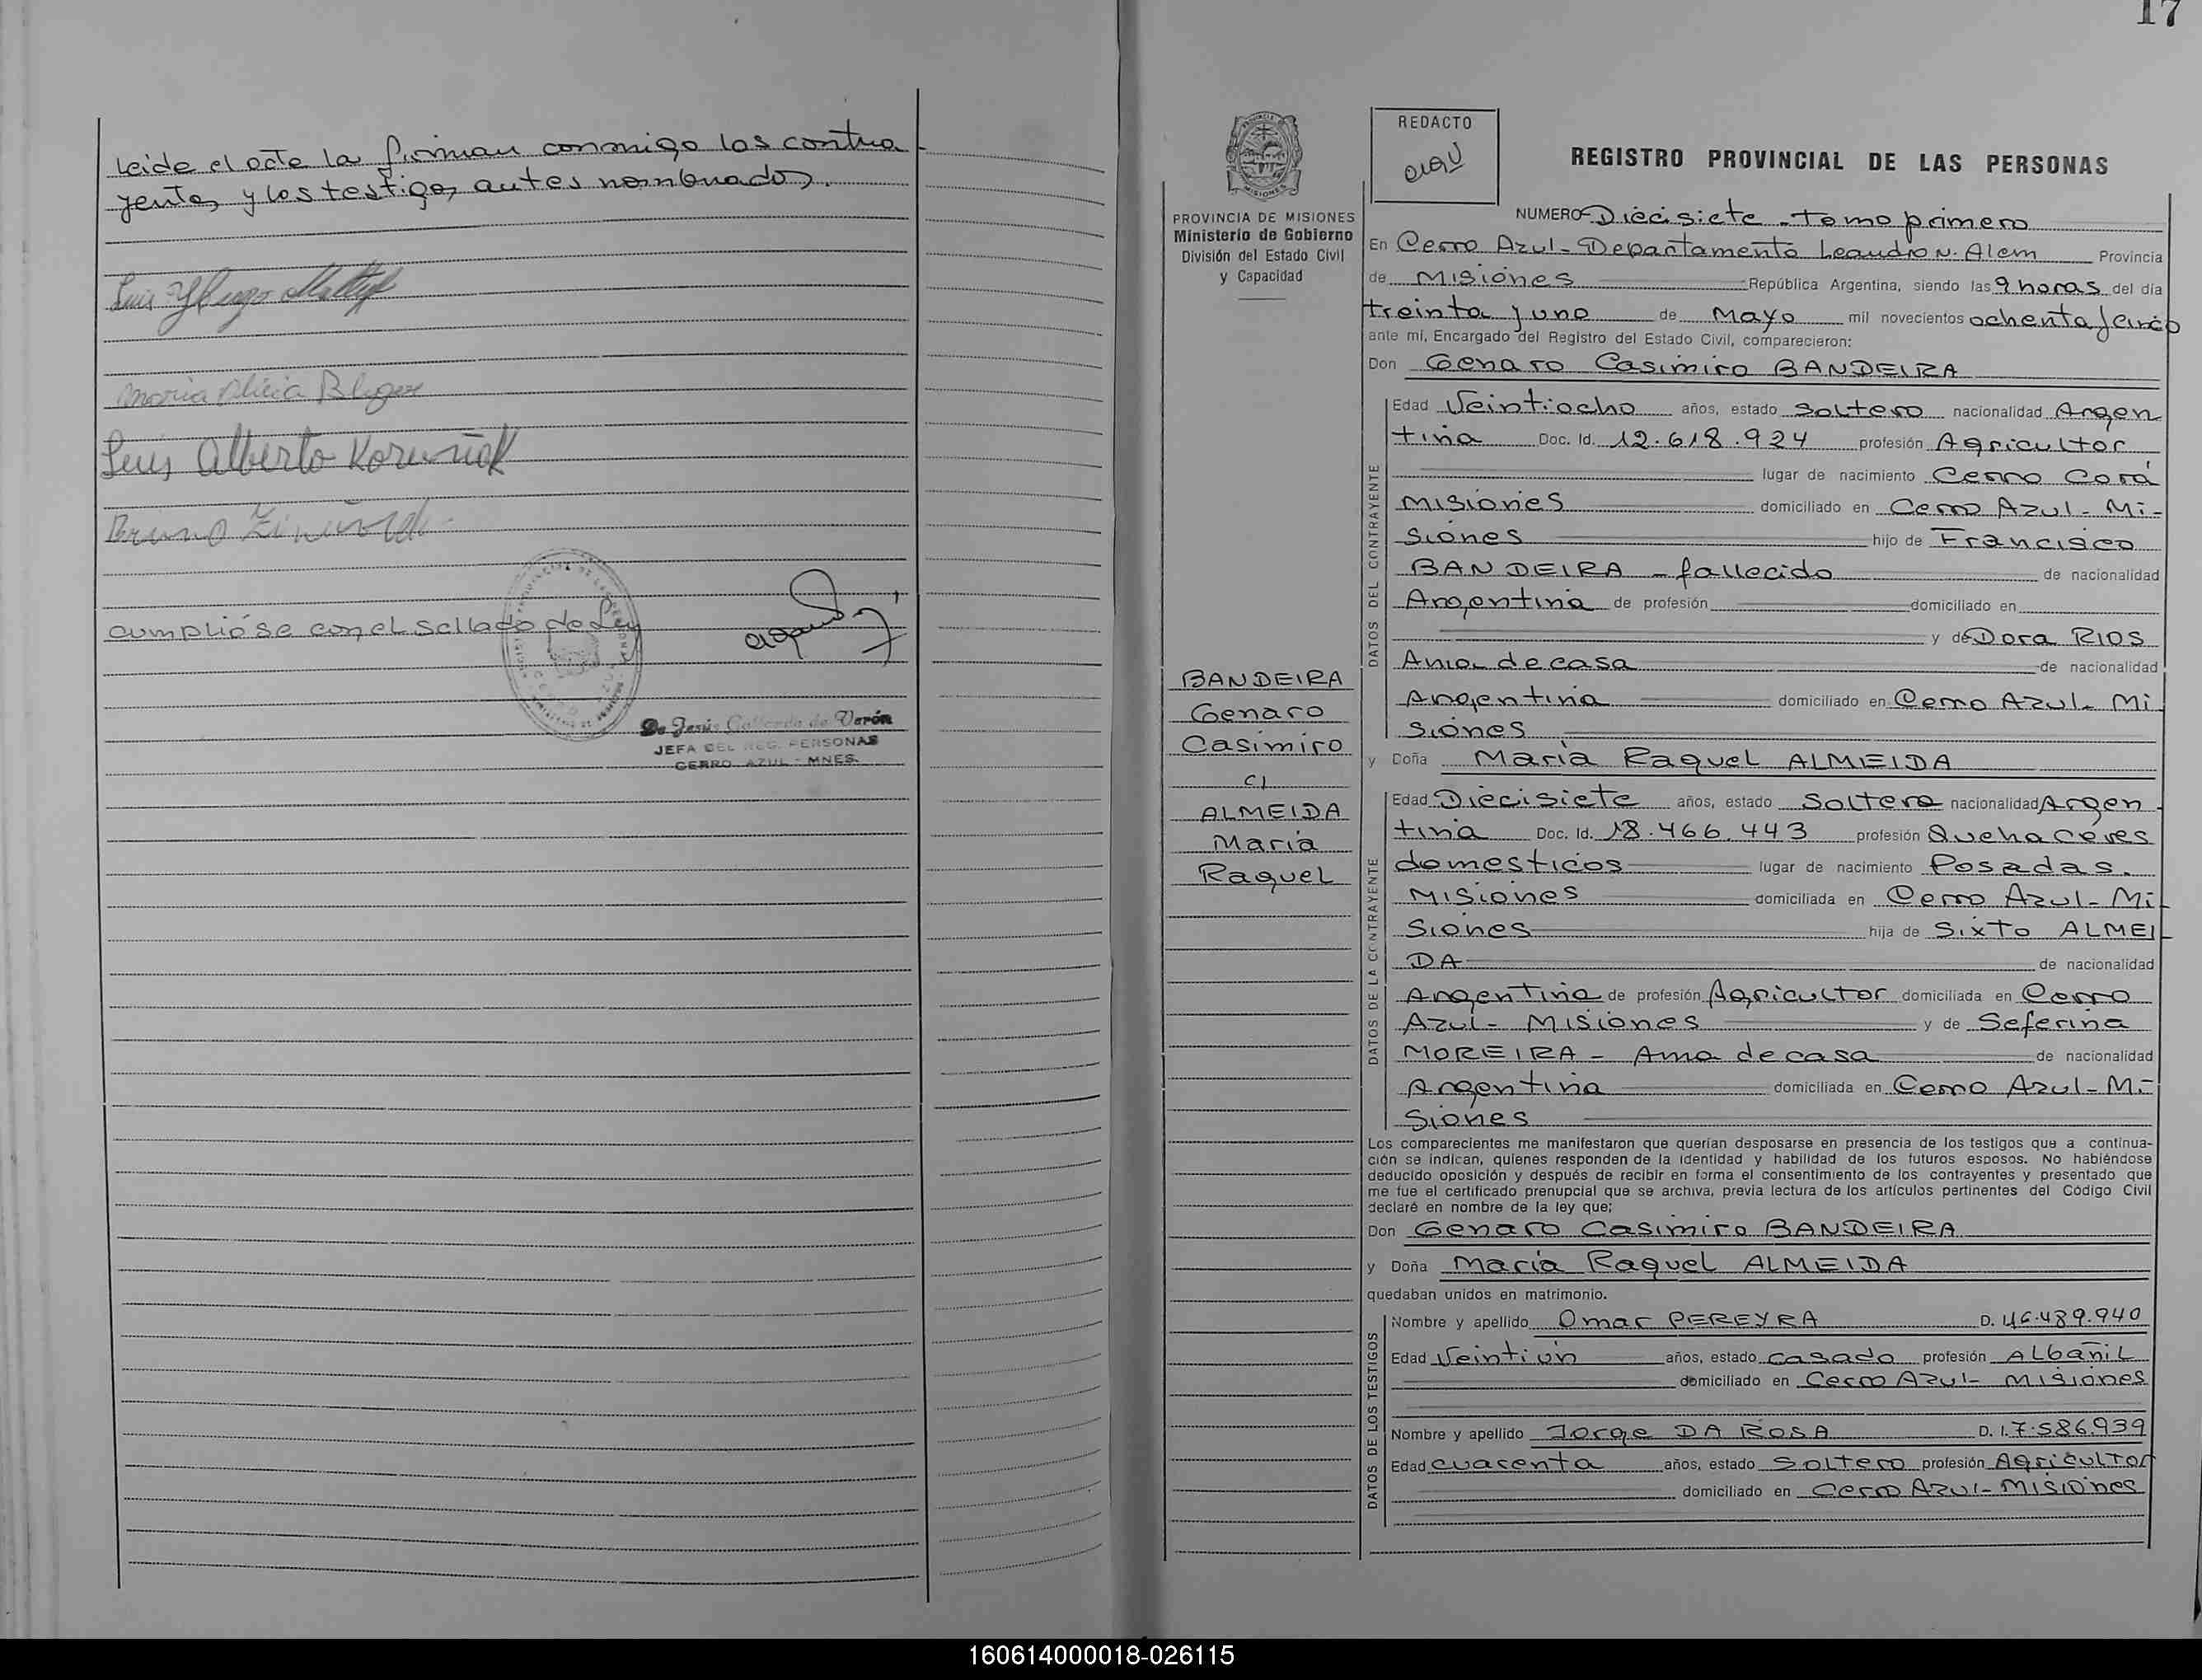 17
Leida el acta la firman conmigo los contra
yentes y los testigos antes nombrados.
Luis Hugo
Maria Alicia
Luis Alberto Koruñak
Bruno
cumplióse con el sellado de Ley
De Jesús Gallardo de Verón
JEFA DEL REG. PERSONAS
CERRO AZUL - MNES.
PROVINCIA DE MISIONES
Ministerio de Gobierno
División del Estado Civil
y Capacidad
BANDEIRA
Genaro
Casimiro
c/
ALMEIDA
Maria
Raquel
REDACTO
REGISTRO PROVINCIAL DE LAS PERSONAS
NUMERO Diecisiete - tomo primero
En Cerro Azul - Departamento Leandro N. Alem Provincia
de Misiones República Argentina, siendo las 9 horas del día
treinta y uno de Mayo mil novecientos ochenta y cinco
ante mí, Encargado del Registro del Estado Civil, comparecieron:
Don Genaro Casimiro BANDEIRA
DATOS DEL CONTRAYENTE
Edad Veintiocho años, estado Soltero nacionalidad Argen
tina Doc. Id. 12.618.924 profesión Agricultor
lugar de nacimiento Cerro Corá
Misiones domiciliado en Cerro Azul - Mi-
siones hijo de Francisco
BANDEIRA - fallecido de nacionalidad
Argentina de profesión domiciliado en
y de Dora RIOS
Ama de casa de nacionalidad
Argentina domiciliado en Cerro Azul - Mi
siones
y Doña Maria Raquel ALMEIDA
DATOS DE LA CONTRAYENTE
Edad Diecisiete años, estado Soltera nacionalidad Argen
tina Doc. Id. 18.466.443 profesión Quehaceres
domesticos lugar de nacimiento Posadas.
Misiones domiciliada en Cerro Azul - Mi
siones hija de Sixto ALMEI
DA de nacionalidad
Argentina de profesión Agricultor domiciliada en Cerro
Azul - Misiones y de Seferina
MOREIRA - Ama de casa de nacionalidad
Argentina domiciliada en Cerro Azul - Mi-
siones
Los comparecientes me manifestaron que querían desposarse en presencia de los testigos que a continua-
ción se indican, quienes responden de la identidad y habilidad de los futuros esposos. No habiéndose
deducido oposición y después de recibir en forma el consentimiento de los contrayentes y presentado que
me fue el certificado prenupcial que se archiva, previa lectura de los artículos pertinentes del Código Civil
declaré en nombre de la ley que;
Don Genaro Casimiro BANDEIRA
y Doña Maria Raquel ALMEIDA
quedaban unidos en matrimonio.
DATOS DE LOS TESTIGOS
Nombre y apellido Omar PEREYRA D. I 16.489.940
Edad Veintiún años, estado casado profesión Albañil
domiciliado en Cerro Azul - Misiones
Nombre y apellido Jorge DA ROSA D. I. 7.586.939
Edad cuarenta años, estado Soltero profesión Agricultor
domiciliado en Cerro Azul - Misiones
160614000018-026115